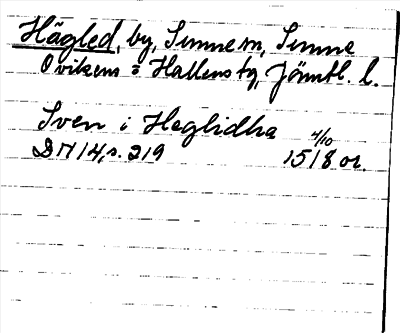 Hägled, by, Sunne sn, Sunne
Ovikens o Hallens tg, Jämtl. l.
Sven i Heglidha
4/10
DN 14, s. 219 1518 or.